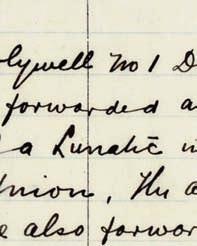 olywell No 1 D
forwarded a
a Lunatic i
nion, The a
e also forwar